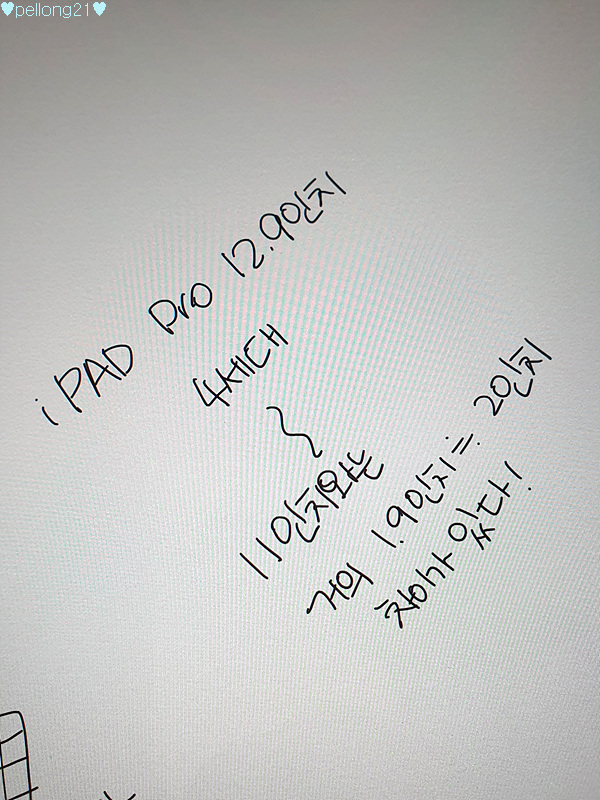 ♥pellong21♥
iPAD pro 12.9인치
4세대
11인치와는
거의 1.9인치≒ 2인치
차이가 있다!